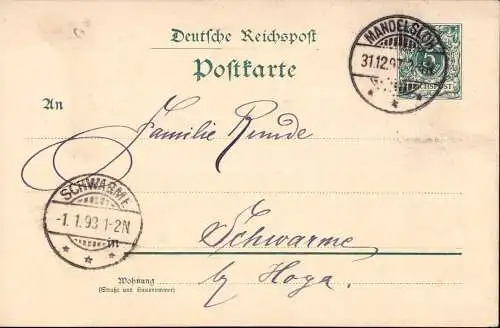 Deutsche Reichspost
Postkarte
MANDELSLOH
31.12.97
REICHSPOST
An
Familie Runde
SCHWARME
-1.1.98 1-2N
in
Schwarme
Wohnung
(Straße und Hausnummer)
by Hoya.